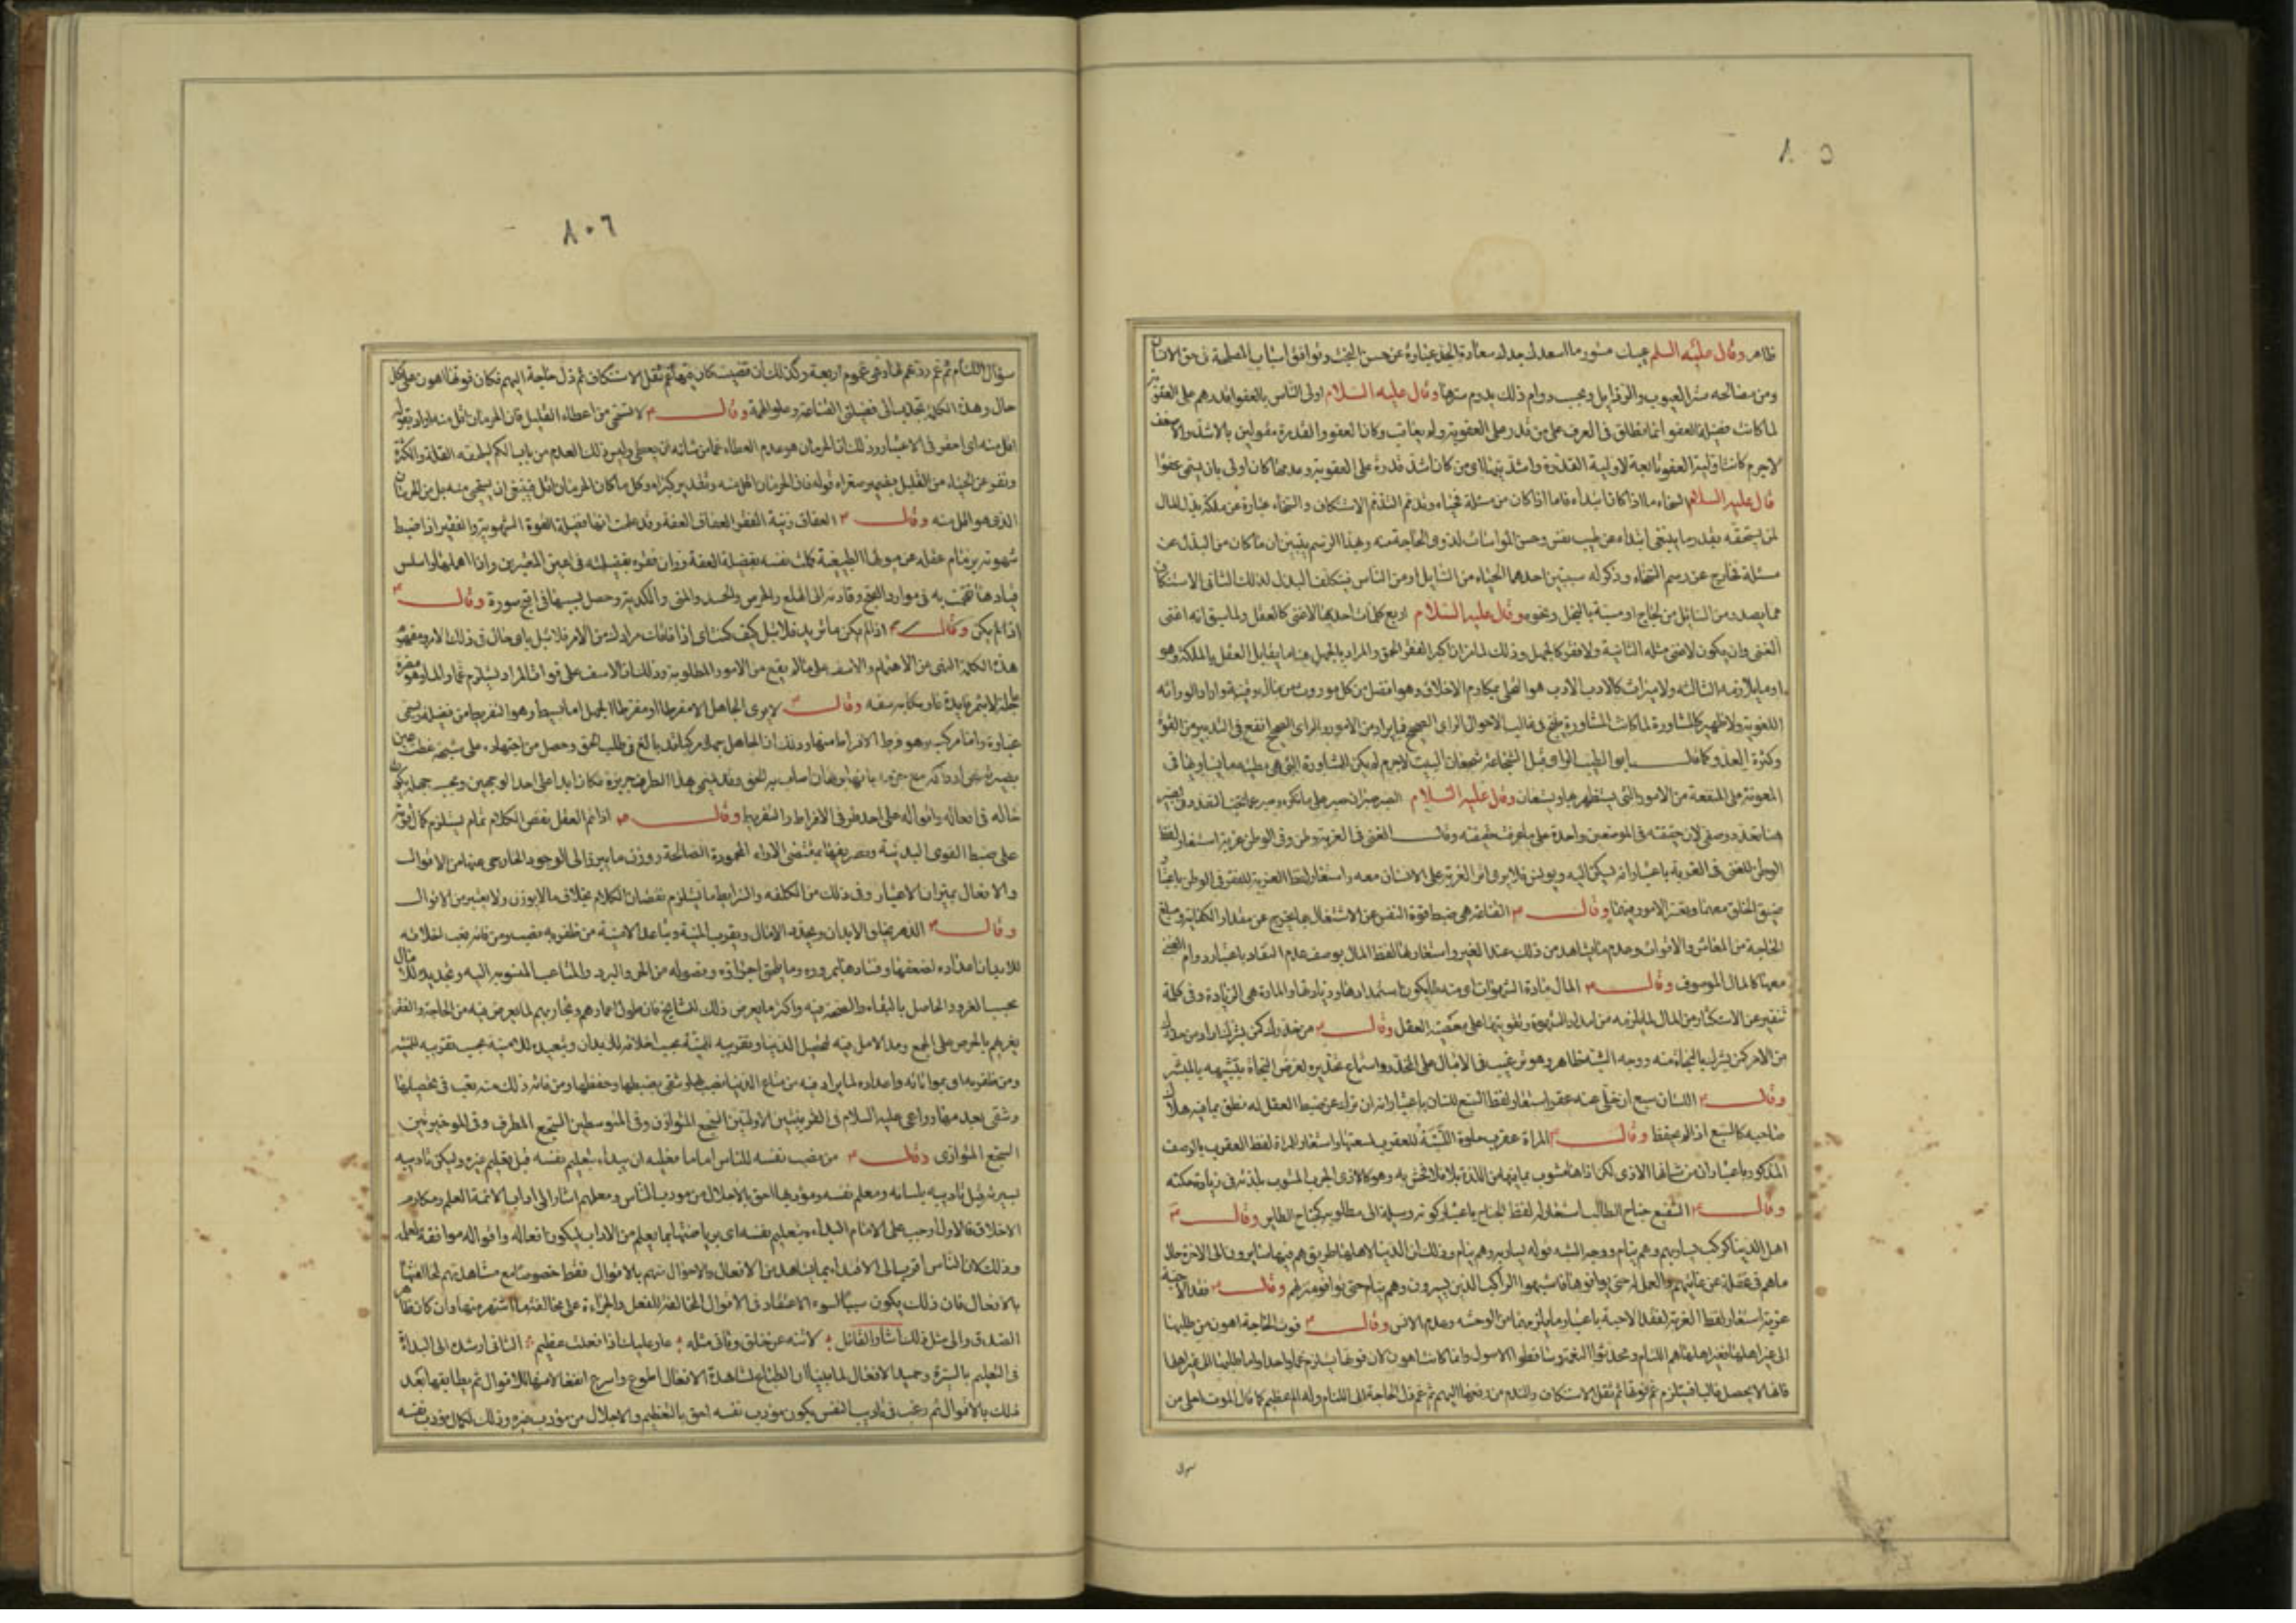 ٨٠٥
ظاهر وقال عليه السلم عيبك مستور ما اسعدك جدك سعادة الجد عبارة عن حسن البخت وتوافق اسباب المصلحة فى حق الانسان
ومن مصالحه ستر العيوب والرذايل وبحسب دوام ذلك يدوم سترها وقال عليه السلام اولى الناس بالعفو اقدرهم على العقوبة
لما كانت فضيلة العفو انما تطلق فى العرف على من قدر على العقوبة ولم يعاقب وكانا لعفو والقدرة مقولين بالاشد والاضعف
لاجرم كانت اولية العفو تابعة لاولية القدرة واشد يتها اى من كان اشد قدرة على العقوبة وعدمها كان اولى بان يسمى عفوا
قال عليه السلام السخاء ما اذا كان ابتداء فاما اذا كان من مسئلة فحياء وتذمم التذمم الاستنكاف والسخاء عبارة عن ملكة بذل المال
لمن يستحقه بقدر ما ينبغى ابتداء عن طيب نفس وحسن المواساة لذوى الحاجة منه وبهذا الرسم يتبين ان ما كان من البذل عن
مسئلة فخارج عن رسم السخاء وذكر له سببين احدهما الحياء من السايل او من الناس فيتكلف البذل لذلك الثانى الاستنكاف
مما يصدر من السايل من لجاج او نسبة بالبخل ونحوه وقال عليه السلام اربع كلمات احديها لاغنى كالعقل ولما سبق انه اغنى
الغنى وان يكون لاغنى مثله الثانية ولا فقر كالجهل وذلك لما مر ان اكبر الفقر الحمق والمراد بالجهل هنا ما يقابل العقل بالملكة وهو
او ما يلازمه الثالثة ولا ميراث كالادب الادب هو التحلى بمكارم الاخلاق وهو افضل من كل موروث من مال وقينة واراد الوراثة
اللغوية ولا ظهير كالمشاورة لما كانت المشاورة ينتج فى غالب الاحوال الراى الصحيح فى ايراد من الامور والراى الصحيح انفع فى التدبير من القوة
وكثرة العدد وكما قال ابو الطيب الراى قبل الشجاعة شجعان البيت لاجرم لم يكن للمشاورة التى هى مظنته ما يساويها فى
المعونة على المنفعة من الامور التى يستظهر بها ويستعان وقال عليه السلام الصبر صبران صبر على ما تكره وصبر عما تحب التعدد فى الصبر
هنا تعدد وصفى لان حقيقته فى الموضعين واحدة على ما عرفت حقيقته وقال الغنى فى الغربة وطن وفى الوطن غربة استعار لفظ
الوطن للغنى فى الغربة باعتبار انه يسكن اليه ويونس فلا يرى اثر الغربة على الانسان معه واستعار لفظ الغربة للفقر فى الوطن باعتبار
ضيق الخلق معهما وتعسر الامور فيهما وقال القناعة هى ضبط قوة النفس عن الاشتغال بما يخرج عن مقدار الكفاية ومبلغ
الحاجة من المعاش والاقوات وعدم ما يشاهد من ذلك عند الغير واستعار لها لفظ المال بوصف عدم النفاد باعتبار دوام الغنى
معها كالمال الموصوف وقال المال مادة الشهوات اى منه يكون استمدادها وزيادتها والمادة هى الزيادة وفى كلمة
تنفير عن الاستكثار من المال لما يلزمه من امداد الشهوة وتقويتها على معصية العقل وقال من حذرك كمن بشرك اراد من حذرك
من الامر كمن بشرك بالنجاة منه ووجه الشبه ظاهر وهو ترغيب فى الاقبال على المحذر واستماع تحذيره لغرض النجاة بتشبيهه بالمبشر
وقال اللسان سبع ان خلى عنه عقر استعار لفظ السبع للسان باعتبار انه ان ترك عن ضبط العقل له نطق بما فيه هلاك
صاحبه كالسبع اذا لم يحفظ وقال المراة عقرب حلوة اللسبة للعقرب لسعتها واستعار للمراة لفظ العقرب بالوصف
المذكور باعتبار ان من شانها الاذى لكن اذاها مشوب بما فيها من اللذة بها فلا تحس به وهو كاذى الجرب المشوب بلذته فى زيادة حكته
وقال الشفيع جناح الطالب استعار له لفظ الجناح باعتبار كونه وسيلة الى مطلوبه كجناح الطاير وقال
اهل الدنيا كركب يسار بهم وهم نيام ووجه الشبه قوله يسار بهم وهم نيام وذلك ان الدنيا لاهلها طريق هم فيها سايرون الى الاخرة حال
ما هم فى غفلة عن غايتهم والعمل له حتى يوافوها فاشبهوا الراكب الذين يسيرون وهم نيام حتى يوافوا منزلهم وقال فقد الاحبة
غربة استعار لفظ الغربة لفقد الاحبة باعتبار ما يلزمهما من الوحشة وعدم الانس وقال فوت الحاجة اهون من طلبها
الى غير اهلها فغير اهلها هم اللئام ومحدثوا النعم وساقطوا الاصول وانما كانت اهون لان فوتها يستلزم غما واحدا واما طلبها الى غير اهلها
فانها لا يحصل غالبا فيستلزم غم فوتها ثم ثقل الاستنكاف والندم من رفعها اليهم ثم غم ذل الحاجة الى اللئام وله الم عظيم كما قال الموت احلى من
سوال
٨٠٦
سؤال اللئام ثم غم ردهم لها وهى غموم اربعة وكذلك ان قضيت كان فيها غم ثقل الاستنكاف ثم ذل حاجة اليهم فكان فوتها اهون على كل
حال وهذه الكلمة تجذب الى فضيلتى القناعة وعلو الهمة وقال لا تستحى من اعطاء القليل فان الحرمان اقل منه اراد بقوله
اقل منه اى احقر فى الاعتبار وذلك ان الحرمان هو عدم العطاء عما من شانه ان يعطى وليس ذلك العدم من باب الكم ليلحقه القلة والكثرة
ونفر عن الحياء من القليل بضمير صغراه قوله فان الحرمان اقل منه وتقدير كبراه وكل ما كان الحرمان اقل فينبغى ان يستحى منه بل من الحرمان
الذى هو اقل منه وقال العفاف زينة الفقر العفاف العفة وقد علمت انها فضيلة القوة الشهوية والفقير اذا ضبط
شهوته بزمام عقله عن ميولها الطبيعية كملت نفسه بفضيلة العفة وزان فقره بفضيلته فى اعين المعتبرين واذا اهملها واسلس
قيادها تقحمت به فى موارد القبح وقادته الى الهلع والحرص والحسد والمنى والكدية وحصل بسببها فى اقبح صورة وقال
اذا لم يكن وقال اذا لم يكن ما تريد فلا تبل كيف كنت اى اذا فاتت مرادك من الامر فلا تبل باى حال فى ذلك الامر ومفهوم
هذه الكلمة النهى عن الاهتمام والاسف على ما لا يقع من الامور المطلوبة وذلك ان الاسف على فوات المراد يستلزم غما والما وهو مضرة
عاجلة لا يثمر فايدة فارتكابه سفه وقال لا يرى الجاهل الا مفرطا او مفرطا الجهل اما بسيط وهو التفريط من فضيلة ويسمى
غباوة واما مركب وهو فرط الافراط منها وذلك ان الجاهل جهلا مركبا قد بالغ فى طلب الحق وحصل من اجتهاده على شبهة غطت عين
بصيرته عن ادراكه مع جزمه بانها برهان اصاب به الحق وقد يسمى هذا الطرف جربزة فكان ابدا على احد الوجهين وبحسب جهله يكون
شاله فى افعاله واقواله على احد طرفى الافراط والتفريط وقال اذا تم العقل نقص الكلام تمام يستلزم كمال قوته
على ضبط القوى البدنية وتصريفها بمقتضى الاراء المحمودة الصالحة ووزن ما يبرز الى الوجود الخارجى عنها من الاقوال
والافعال بميزان الاعتبار وفى ذلك من الكلفة والشرايط ما يستلزم نقصان الكلام بخلاف ما لا يوزن ولا يعتبر من الاقوال
وقال الدهر يخلق الابدان ويجدد الامال ويقرب المنية ويباعد الامنية من ظفر به نصب ومن فاته تعب اخلاقه
للابدان اعداده لضعفها وفسادها بمروره وما يلحق اجزاؤه وفصوله من الحر والبرد والمتاعب المنسوبه اليه وتجديده للامال
بحسب الغرور الحاصل بالبقاء والصحة فيه واكثر ما يعرض ذلك للمشايخ فان طول اعمارهم وتجاربهم لما يعرض فيه من الحاجة والفقر
يغريهم بالحرص على الجمع ومد الامل فيه لتحصيل الدنيا وتقريبه للمنية بحسب اخلاقه للابدان وتبعيده للامنية بحسب تقريبه للمنية
ومن ظفر به اى بمواتاته واعداده لما يراد فيه من متاع الدنيا نصب له وشقى بضبطها وحفظها ومن فاته ذلك منه تعب فى تحصيلها
وشقى بعد مها وراعى عليه السلام فى القرينتين الاوليتين السجع المتوازن وفى المتوسطين السجع المطرف وفى الاخيرتين
السجع المتوازى وقال من نصب نفسه للناس اماما فعليه ان يبداء بتعليم نفسه قبل تعليم غيره وليكن تاديبه
بسيرته قبل تاديبه بلسانه ومعلم نفسه ومؤدبها احق بالاجلال من مودب الناس ومعلمهم اشار الى اداب الائمة العلم ومكارم
الاخلاق فالاول اوجب على الامام البداءة بتعليم نفسه اى برياضتها بما يعلم من الاداب ليكون افعاله واقواله موافقة لعلمه
وذلك لان الناس اقرب الى الاقتداء بما يشاهد من الافعال والاحوال منهم بالاقوال فقط خصوصا مع مشاهدتهم لمخالفتها
بالافعال فان ذلك يكون سببا لسوء الاعتقاد فى الاقوال المخالفة للفعل والجراءة على مخالفتها اشتهر منها وان كان ظاهر
الصدق والى مثل ذلك اشار القائل لا تنه عن خلق وتاتى مثله عار عليك اذا فعلت عظيم الثانى ارشد الى البداءة
فى التعليم بالسيرة وحميد الافعال لما بينا ان الطباع لمشاهدة الافعال اطوع واسرع انفعالا منها للاقوال ثم يطابقها بعد
ذلك بالاقوال ثم رغب فى تاديب النفس بكون مؤدب نفسه احق بالتعظيم والاجلال من مؤدب غيره وذلك لكمال مؤدب نفسه